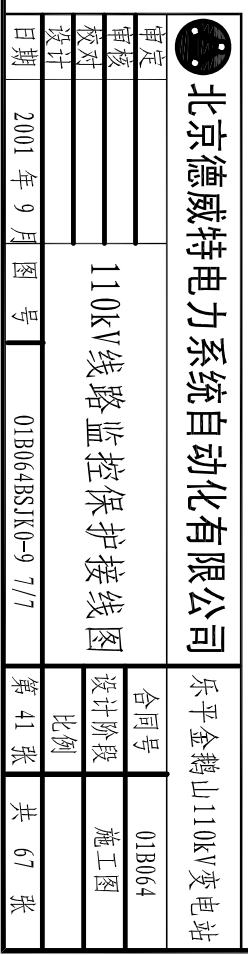 北京德威特电力系统自动化有限公司
乐平金鹅山110kV变电站
审定
审核
校对
设计
110kV线路监控保护接线图
合同号 01B064
设计阶段 施工图
比例
日期 2001 年 9 月 图 号 01B064BSJK0-9 7/7 第 41 张 共 67 张